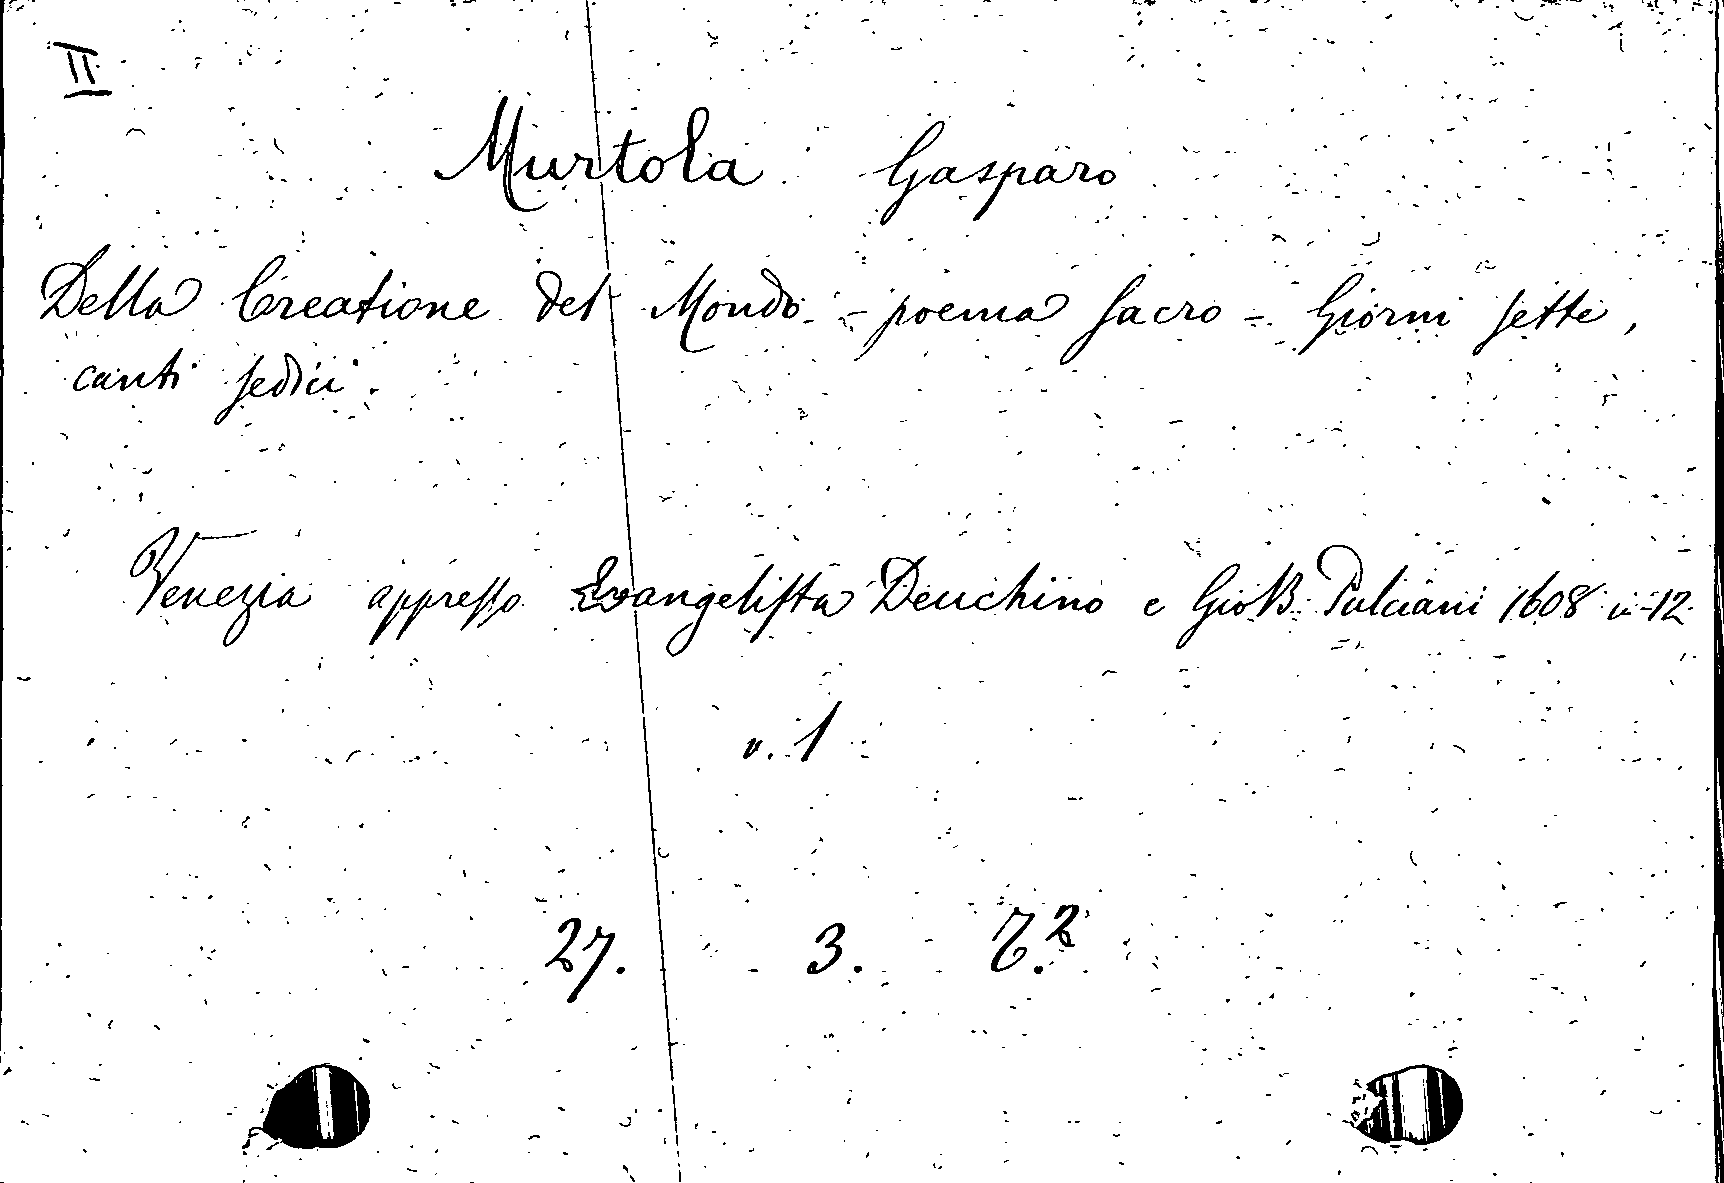 II
Murtola Gasparo
Della Creatione del Mondo - poema sacro - Giorni sette,
canti sedici.
Venezia appresso Evangelista Deuchino e Gio B. Pulciani 1608 in-12
v. 1
27. 3.